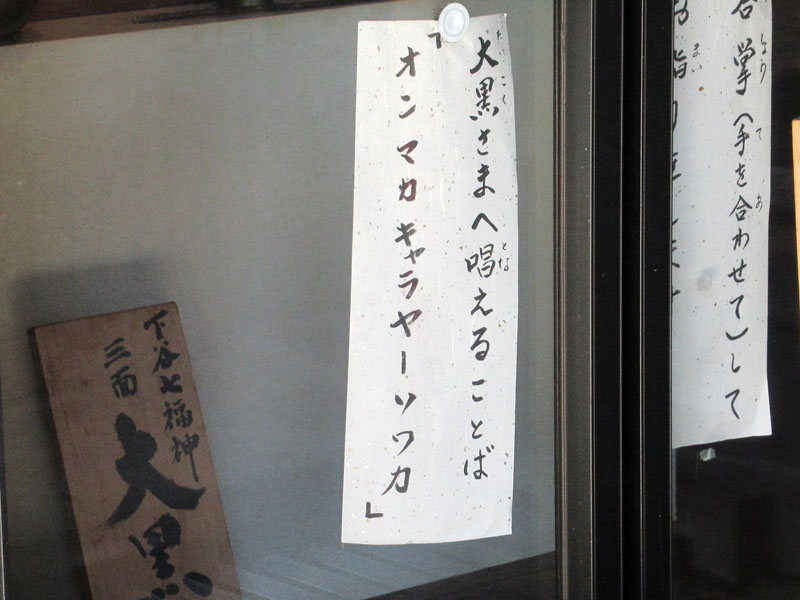 合掌(手を合わせて)して
大黒さまへ唱えることば
「オン マカ キャラヤーソワカ」
下谷七福神
三面
大黒